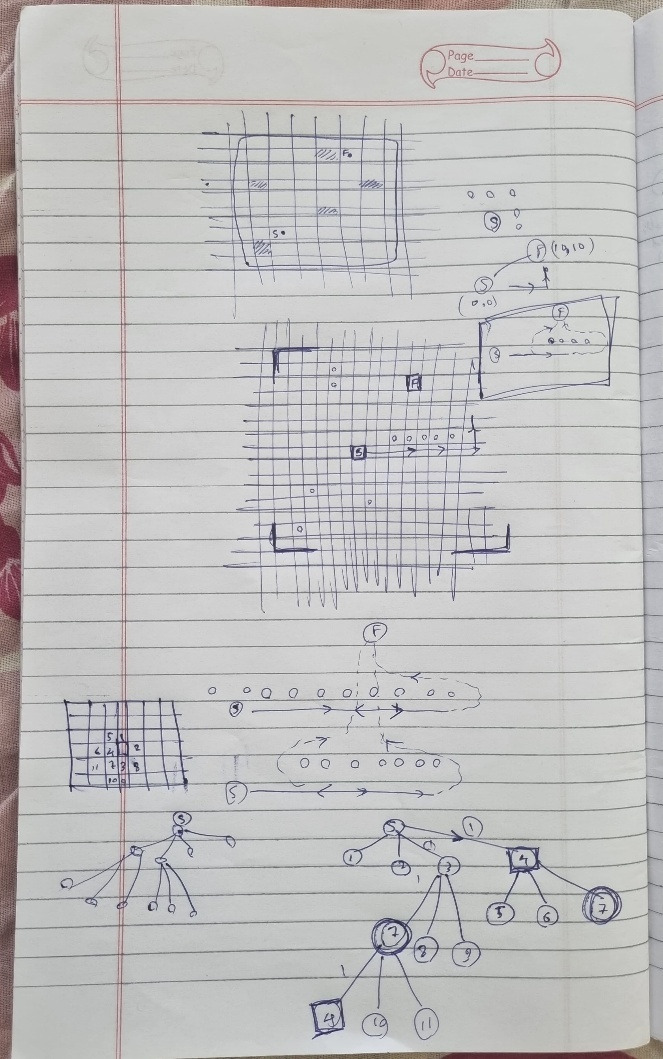 Page
Date
F
S
S
F (10,10)
S
(0,0)
F
S
F
S
F
S
5 1
6 4 2
11 7 3 8
10 9
S
S
S 1
1 2 3 4
1
5 6 7
7 8 9
1
4 10 11